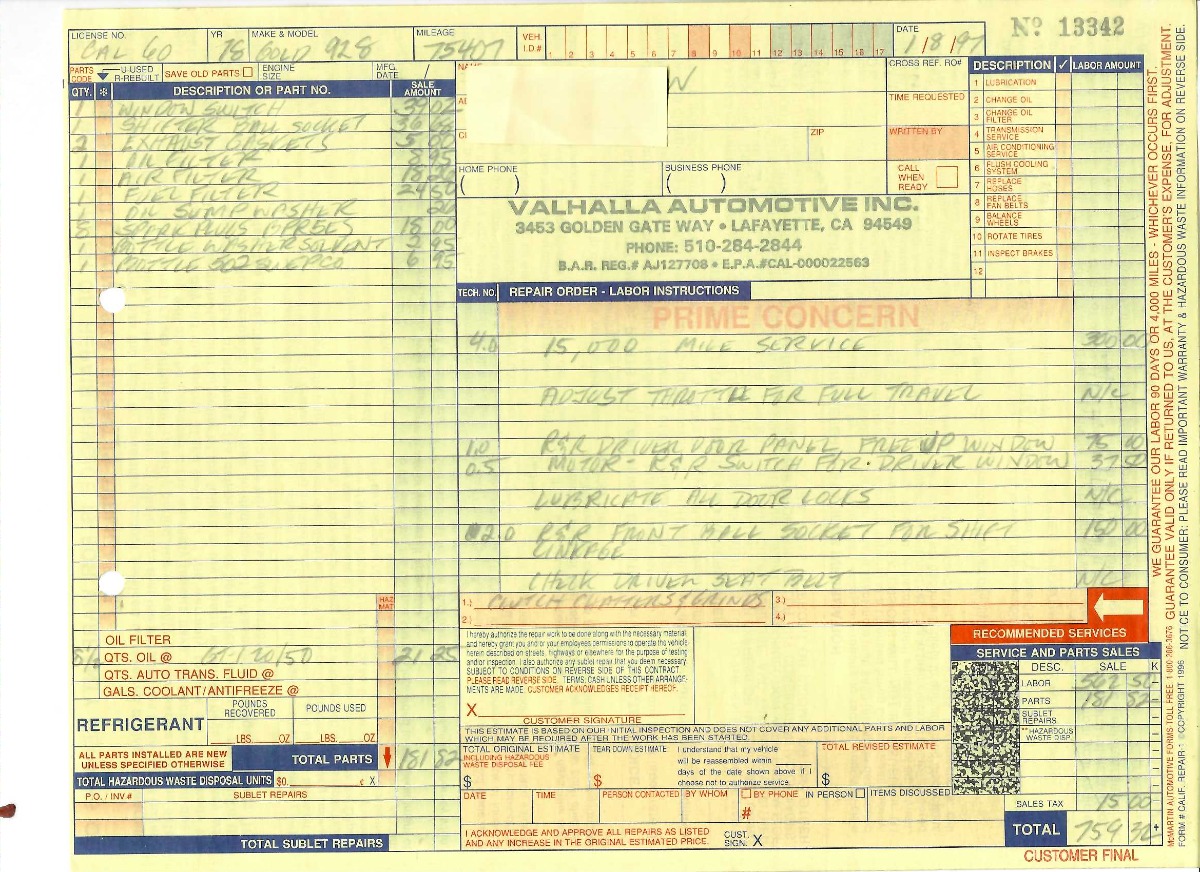 LICENSE NO. YR MAKE & MODEL MILEAGE VEH. I.D.# 1 2 3 4 5 6 7 8 9 10 11 12 13 14 15 16 17 DATE Nº 13342
CAL 60 78 GOLD 928 75407 1/8/97
PARTS CODE U-USED R-REBUILT SAVE OLD PARTS ENGINE SIZE MFG. DATE /
QTY. * DESCRIPTION OR PART NO. SALE AMOUNT
1 WINDOW SWITCH
1 SHIFTER BALL SOCKET
2 EXHAUST GASKETS 5.00
1 OIL FILTER 8.95
1 AIR FILTER
1 FUEL FILTER 24.50
1 OIL SUMP WASHER
8 SPARK PLUG 18.00
1 BOTTLE WASHER SOLVENT 2.95
1 BOTTLE 6.95
CROSS REF. RO#
TIME REQUESTED
WRITTEN BY
ZIP
HOME PHONE BUSINESS PHONE
( ) ( )
CALL WHEN READY
VALHALLA AUTOMOTIVE INC.
3453 GOLDEN GATE WAY • LAFAYETTE, CA 94549
PHONE: 510-284-2844
B.A.R. REG.# AJ127708 • E.P.A.#CAL-000022563
DESCRIPTION ✓ LABOR AMOUNT
1 LUBRICATION
2 CHANGE OIL
3 CHANGE OIL FILTER
4 TRANSMISSION SERVICE
5 AIR CONDITIONING SERVICE
6 FLUSH COOLING SYSTEM
7 REPLACE HOSES
8 REPLACE FAN BELTS
9 BALANCE WHEELS
10 ROTATE TIRES
11 INSPECT BRAKES
12
TECH. NO. REPAIR ORDER - LABOR INSTRUCTIONS
PRIME CONCERN
4.0 15,000 MILE SERVICE 300 00
ADJUST THROTTLE FOR FULL TRAVEL N/C
1.0 R&R DRIVER DOOR PANEL, FREE UP WINDOW 75 00
0.5 MOTOR - R&R SWITCH FOR DRIVER WINDOW 37 50
LUBRICATE ALL DOOR LOCKS N/C
2.0 R&R FRONT BALL SOCKET FOR SHIFT 150 00
LINKAGE
CHECK DRIVER SEAT BELT N/C
1.) CLUTCH CHATTERS & GRINDS 3.)
2.) 4.)
RECOMMENDED SERVICES
HAZ MAT
OIL FILTER
QTS. OIL @ 20/50 21 25
QTS. AUTO TRANS. FLUID @
GALS. COOLANT/ANTIFREEZE @
REFRIGERANT POUNDS RECOVERED POUNDS USED
LBS. OZ LBS. OZ
ALL PARTS INSTALLED ARE NEW UNLESS SPECIFIED OTHERWISE TOTAL PARTS 181 82
TOTAL HAZARDOUS WASTE DISPOSAL UNITS $0. ¢ X
P.O. / INV # SUBLET REPAIRS
TOTAL SUBLET REPAIRS
I hereby authorize the repair work to be done along with the necessary material
and hereby grant you and/or your employees permissions to operate the vehicle
herein described on streets, highways or elsewhere for the purpose of testing
and/or inspection. I also authorize any sublet repair that you deem necessary.
SUBJECT TO CONDITIONS ON REVERSE SIDE OF THIS CONTRACT.
PLEASE READ REVERSE SIDE. TERMS: CASH UNLESS OTHER ARRANGE-
MENTS ARE MADE. CUSTOMER ACKNOWLEDGES RECEIPT HEREOF.
X
CUSTOMER SIGNATURE
THIS ESTIMATE IS BASED ON OUR INITIAL INSPECTION AND DOES NOT COVER ANY ADDITIONAL PARTS AND LABOR
WHICH MAY BE REQUIRED AFTER THE WORK HAS BEEN STARTED.
TOTAL ORIGINAL ESTIMATE INCLUDING HAZARDOUS WASTE DISPOSAL FEE $
TEAR DOWN ESTIMATE $
I understand that my vehicle
will be reassembled within
days of the date shown above if I
choose not to authorize service.
TOTAL REVISED ESTIMATE $
DATE TIME PERSON CONTACTED BY WHOM BY PHONE IN PERSON ITEMS DISCUSSED
#
I ACKNOWLEDGE AND APPROVE ALL REPAIRS AS LISTED
AND ANY INCREASE IN THE ORIGINAL ESTIMATED PRICE.
CUST. SIGN. X
SERVICE AND PARTS SALES
DESC. SALE K
LABOR 562 50
PARTS 181 82
SUBLET REPAIRS
**HAZARDOUS WASTE DISP.
SALES TAX 15 00
TOTAL 759 32 +
CUSTOMER FINAL
WE GUARANTEE OUR LABOR 90 DAYS OR 4,000 MILES - WHICHEVER OCCURS FIRST.
GUARANTEE VALID ONLY IF RETURNED TO US, AT THE CUSTOMER'S EXPENSE, FOR ADJUSTMENT.
NOTICE TO CONSUMER: PLEASE READ IMPORTANT WARRANTY & HAZARDOUS WASTE INFORMATION ON REVERSE SIDE.
McMARTIN AUTOMOTIVE FORMS TOLL FREE 1-800-286-3676
FORM # CALIF. REPAIR-1 © COPYRIGHT 1995